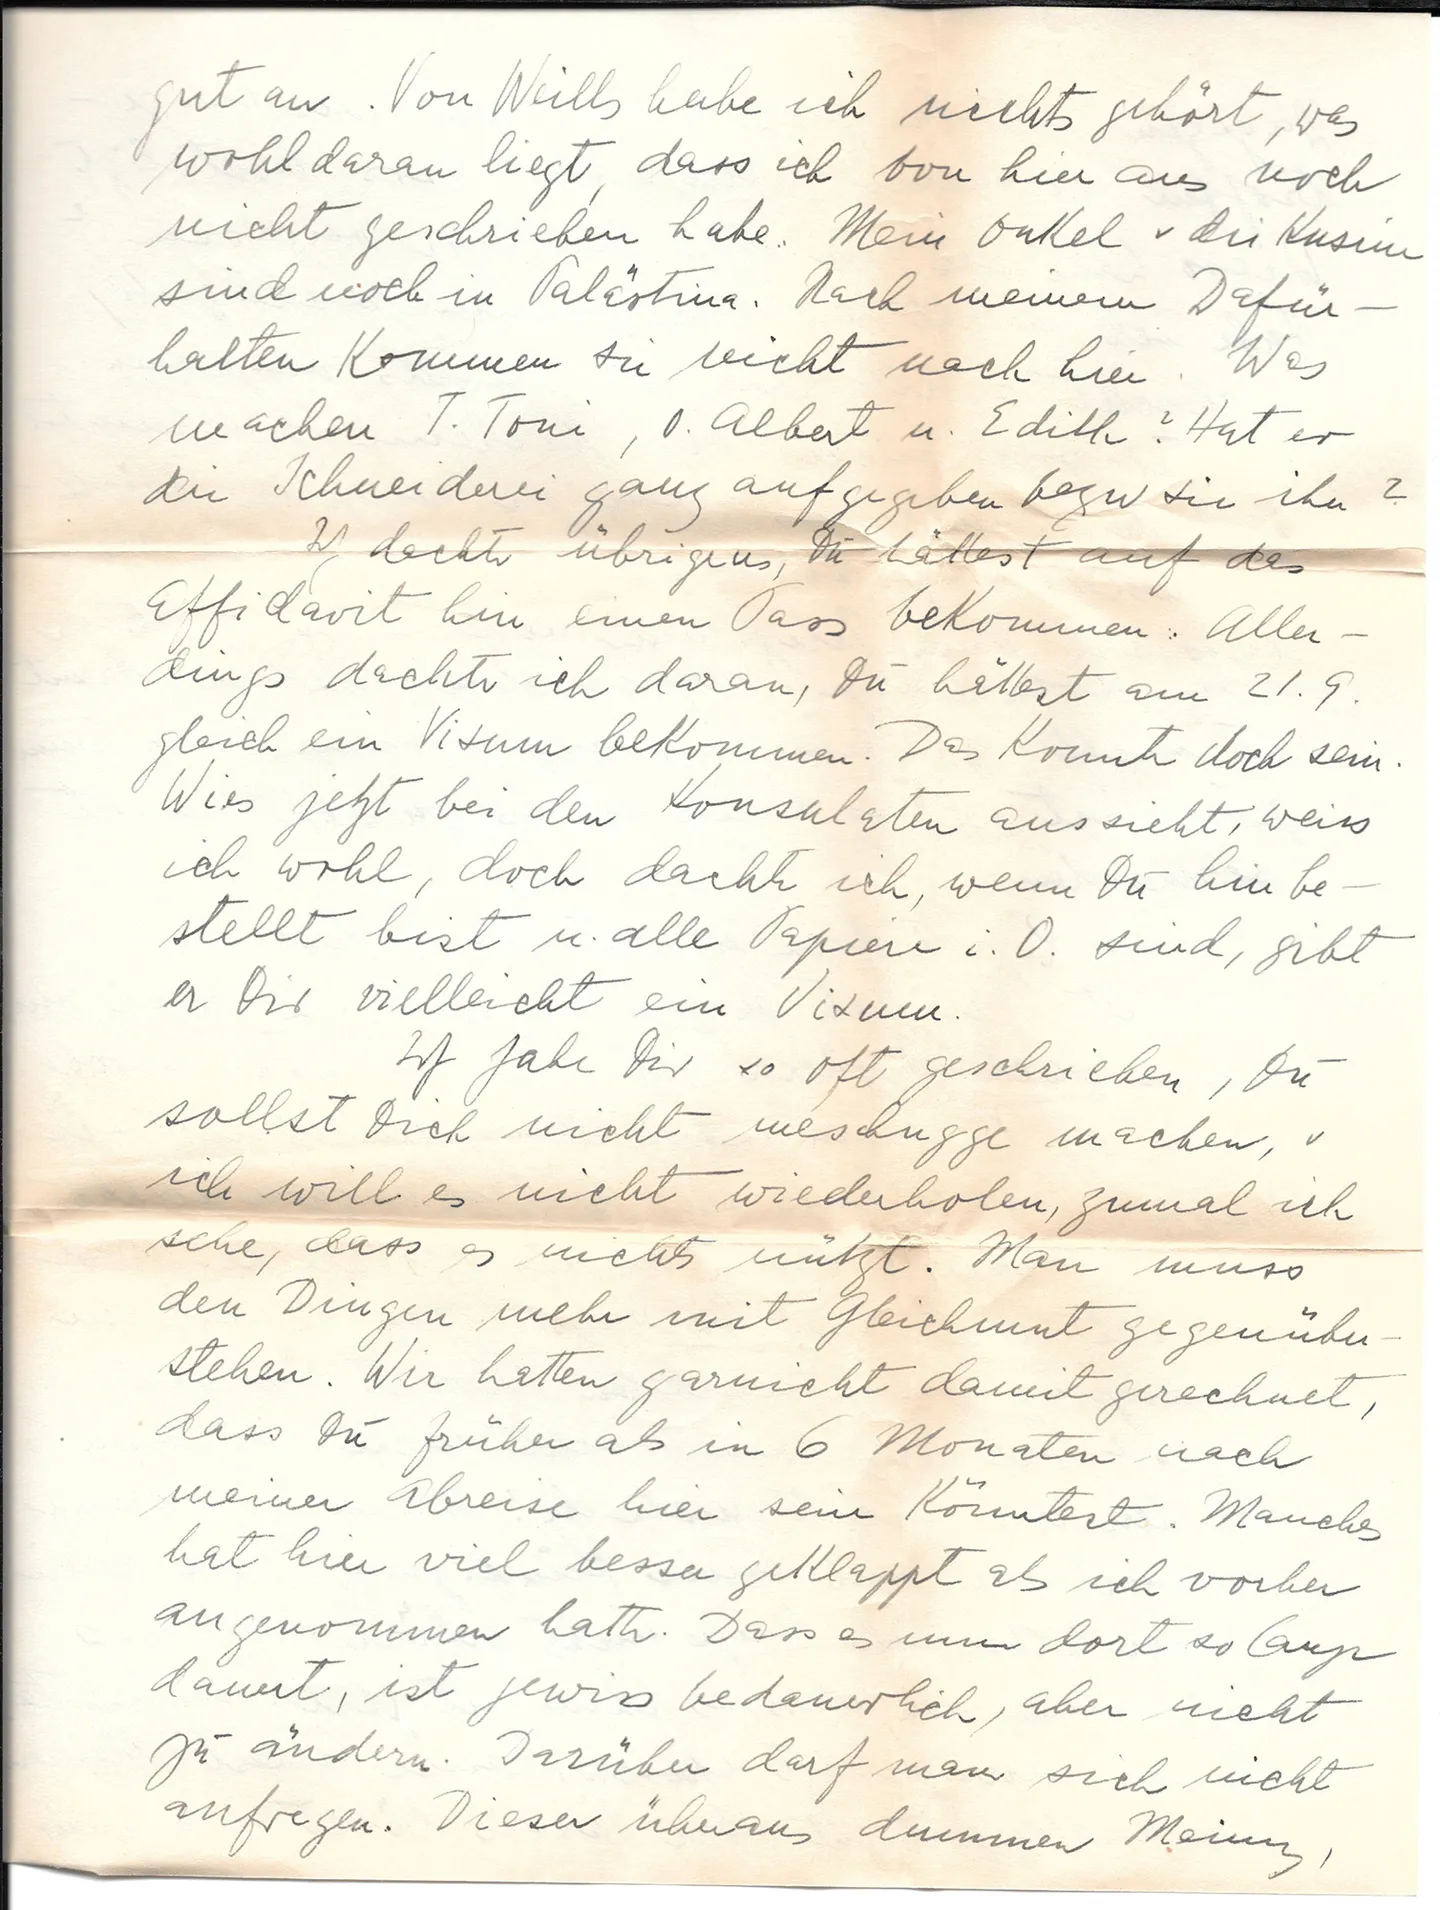 gut an. Von Weills habe ich nichts gehört, was
wohl daran liegt, dass ich von hier aus noch
nicht geschrieben habe. Mein Onkel u die Kusine
sind noch in Palästina. Nach meinem Dafür-
halten kommen sie nicht nach hier. Was
machen T. Toni, O. Albert u. Edith? Hat er
die Schneiderei ganz aufgegeben bezw sie ihn?
Ich dachte übrigens, Du hättest auf das
Affidavit hin einen Pass bekommen. Aller-
dings dachte ich daran, Du hättest am 21.9.
gleich ein Visum bekommen. Das konnte doch sein.
Wies jetzt bei den Konsulaten aussieht, weiss
ich wohl, doch dachte ich, wenn Du hinbe-
stellt bist u. alle Papiere i. O. sind, gibt
er Dir vielleicht ein Visum.
Ich habe Dir so oft geschrieben, Du
sollst Dich nicht meschugge machen, u
ich will es nicht wiederholen, zumal ich
sehe, dass es nichts nützt. Man muss
den Dingen mehr mit Gleichmut gegenüber-
stehen. Wir hatten garnicht damit gerechnet,
dass Du früher als in 6 Monaten nach
meiner Abreise hier sein könntest. Manches
hat hier viel besser geklappt als ich vorher
angenommen hatte. Dass es nun dort so lange
dauert, ist gewiss bedauerlich, aber nicht
zu ändern. Darüber darf man sich nicht
aufregen. Dieser überaus dummen Meinung,